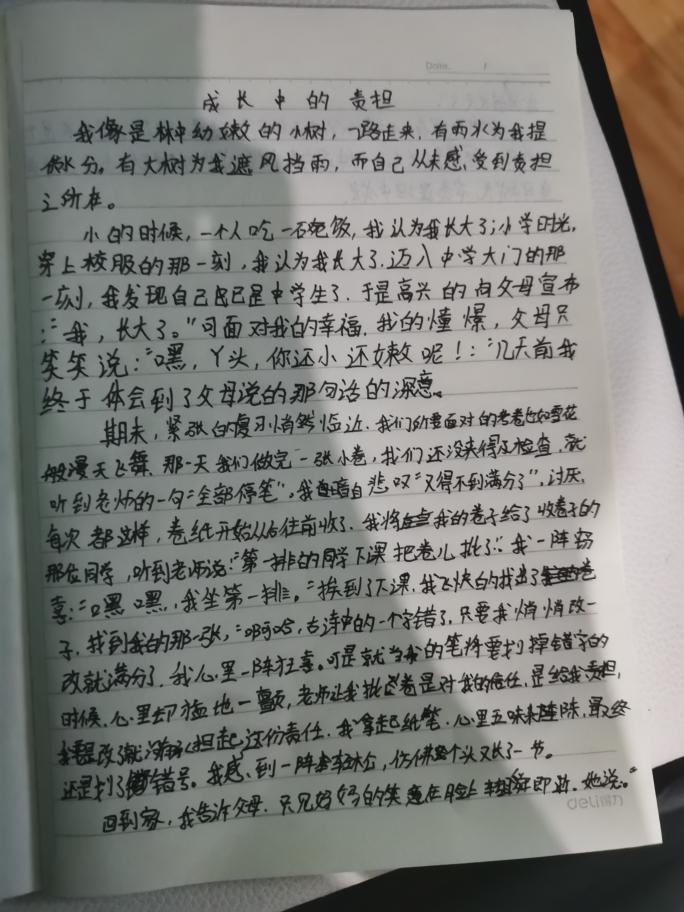 Date. /
成长中的责担
我像是林中幼嫩的小树，一路走来，有雨水为我提
供水分。有大树为我遮风挡雨，而自己从未感受到责担
之所在。
小的时候，一个人吃一碗饭，我认为我长大了；小学时光，
穿上校服的那一刻，我认为我长大了，迈入中学大门的那
一刻，我发现自己已是中学生了．于是高兴的向父母宣布
：“我，长大了。”可面对我的幸福，我的憧憬，父母只
笑笑说：“嘿，丫头，你还小还嫩呢！：“几天前我
终于体会到了父母说的那句话的深意。
期末，紧张的复习悄然临近．我们所要面对的考卷如雪花
般漫天飞舞．那一天我们做完一张小卷，我们还没来得及检查，就
听到老师的一句“全部停笔”．我暗自悲叹“又得不到满分了”，讨厌，
每次都这样，卷纸开始从后往前收了．我将我的卷子给了收卷子的
那位同学，听到老师说：“第一排的同学下课把卷儿批了：我一阵窃
喜：“嘿嘿，我坐第一排。“挨到了下课，我飞快的找出了卷
子，找到我的那一张，“啊哈，古诗中的一个字错了．只要我悄悄改一
改就满分了．我心里一阵狂喜。可是就当我的笔将要划掉错字的
时候．心里却猛地一颤，老师让我批卷是对我的信任，是给我责担，
改了就没有承担起这份责任．我拿起纸笔．心里五味杂陈．最终
还是划了错号。我感到一阵轻松，仿佛整个头又长了一节。
回到家，我告诉父母．只见妈妈的笑意在脸上．她说。“
deli得力